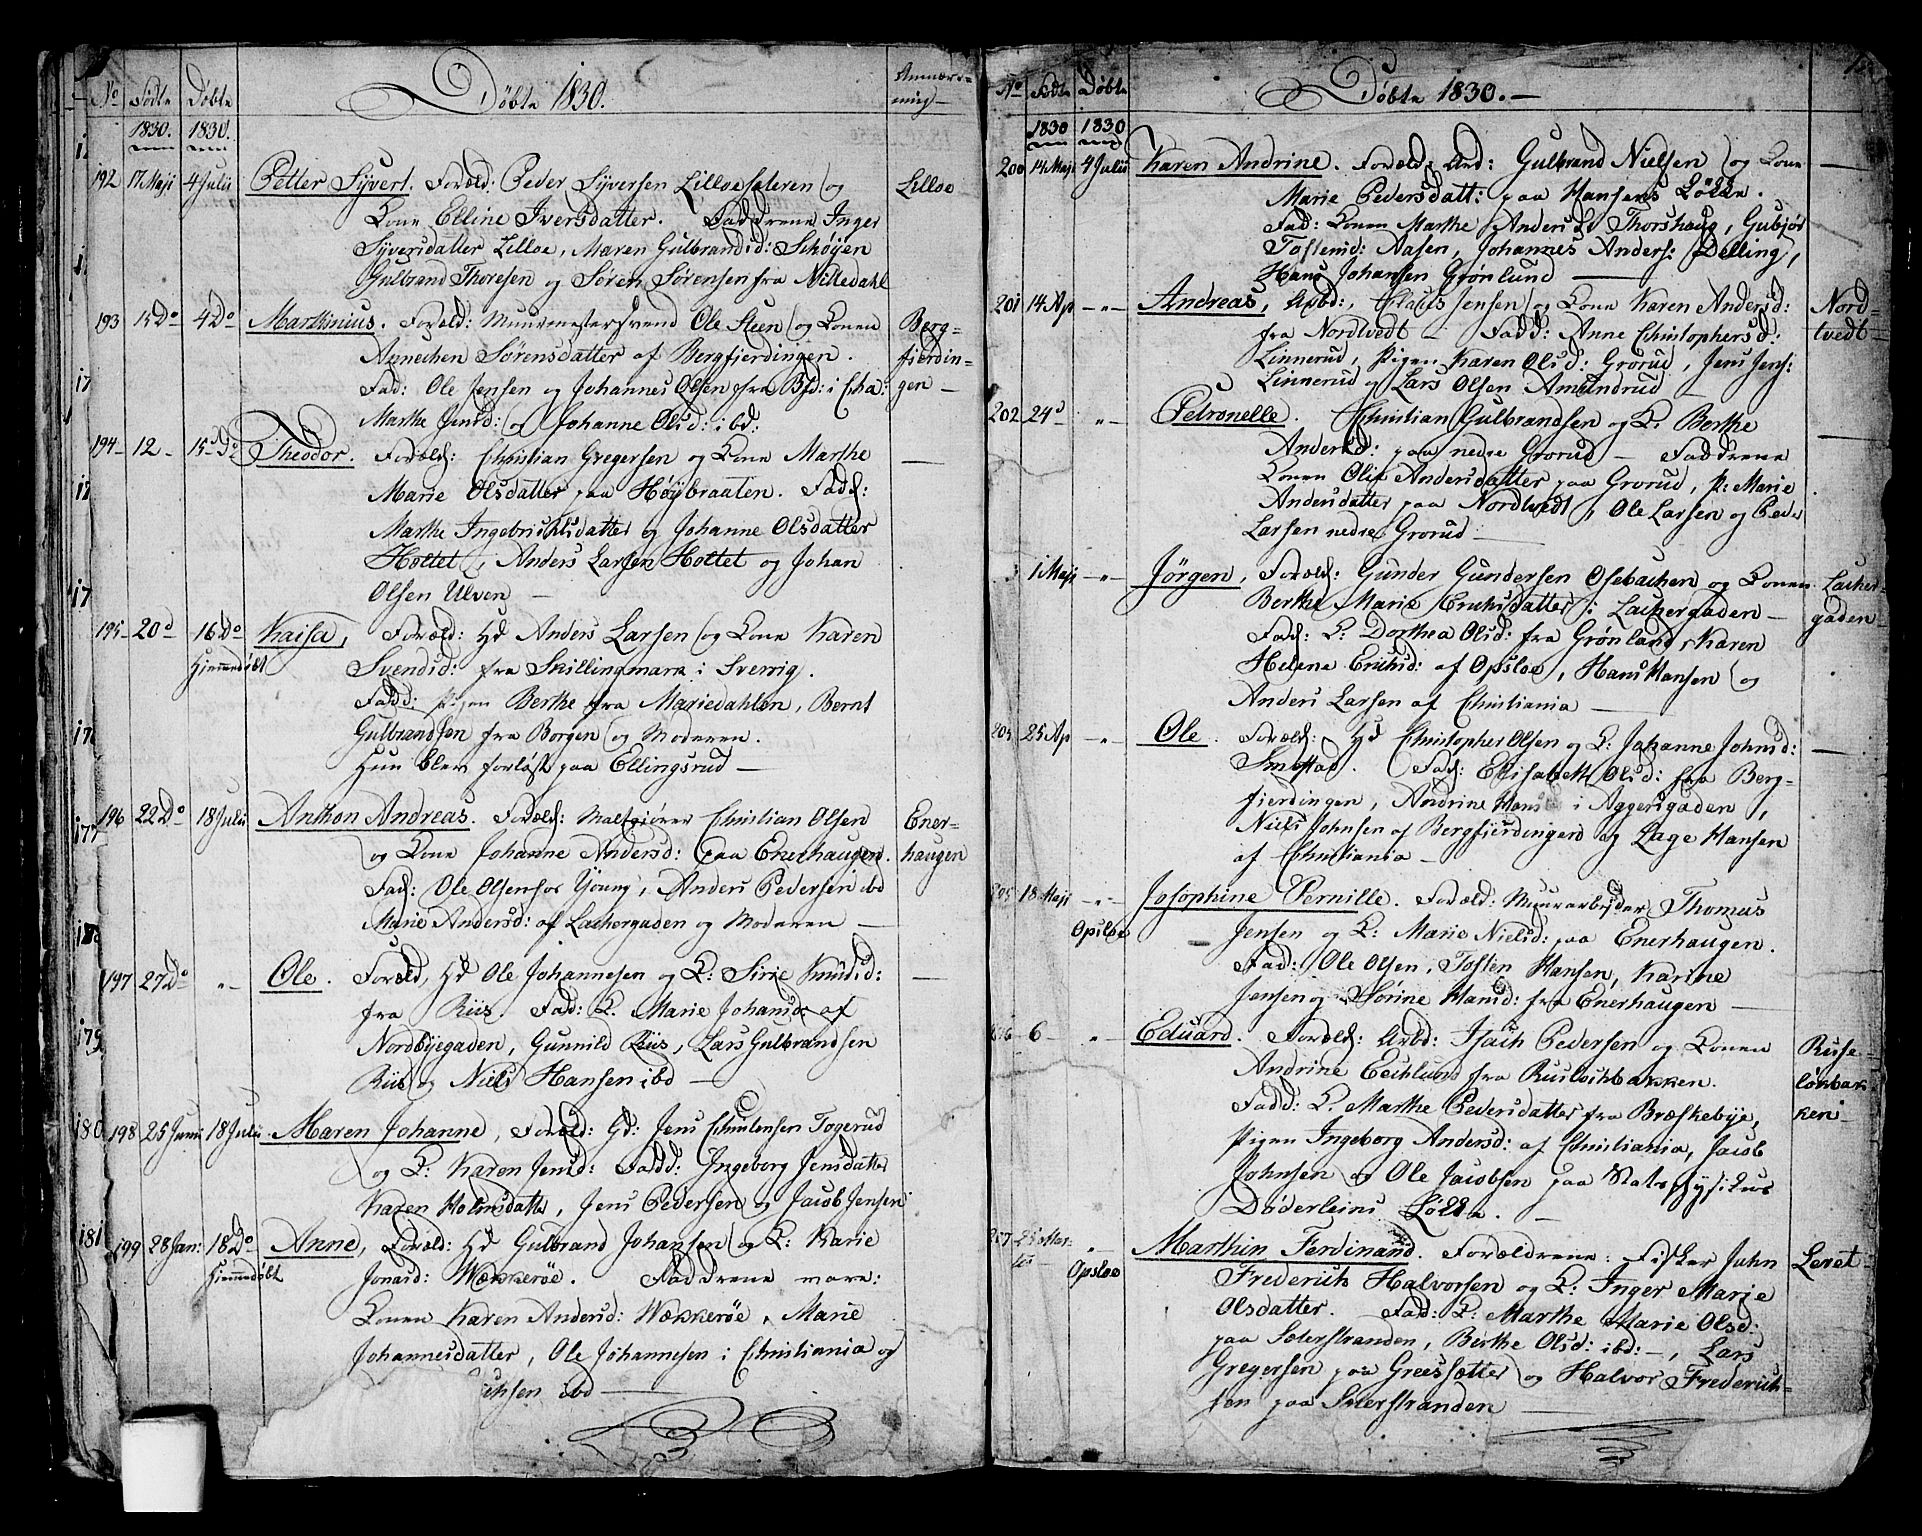 No Fødte Døbte Døbte 1830. Anmærk-
ning
1830. 1830.
192 17 Maji 4 Julii Petter Syvert. Foræld: Peder Syversen Lilloesæteren og Lilloe
Kone Elline Iversdatter. Faddrene Inger
Syversdatter Lilloe, Maren Gulbrandsd: Schøyen
Gulbrand Thoresen og Søren Sørensen fra Nittedahl
193 15 Do 4 Do Marthinius. Foræld: Muurmestersvend Ole Steen og Konen Berg-
Annechen Sørensdatter af Bergfjerdingen. fjerdin-
Fad: Ole Jensen og Johannes Olsen fra Bfd: i Cha: gen
Marthe Jensd: og Johanne Olsd: ibd.
194 12 15 Do Theodor. Foræld: Christian Gregersen og Kone Marthe
Marie Olsdatter paa Høybraaten. Fad:
Marthe Ingebrichtsdatter og Johanne Olsdatter
Holtet, Anders Larsen Holtet og Johan
Olsen Ulven
195 20 d 16 Do Kaisa, Foræld: Gd Anders Larsen og Kone Karen
Hjemmedøbt Svendsd: fra Skillingmark i Sverrig.
Fadd: Pigen Berthe fra Mariedahlen, Bernt
Gulbrandsen fra Borgen og Moderen.
Hun blev forløst paa Ellingsrud
196 22 Do 18 Julii Anthon Andreas. Foræld: Maltgiører Christian Olsen Ener-
og Kone Johanne Andersd: paa Enerhaugen. haugen
Fad: Ole Olsen hos Young, Anders Pedersen ibd
Marie Andersd: af Lachergaden og Moderen
197 27 Do " Ole. Foræld, Gd Ole Johannesen og K: Sirie Knudsd:
fra Riis. Fad: K. Marie Johansd: af
Nordbyegaden, Gunnild Riis, Lars Gulbrandsen
Riis og Niels Hansen ibd
198 25 Junii 18 Julii Maren Johanne, Foræld: Gd: Jens Christensen Togerud
og K: Karen Jensd: Fadd: Ingeborg Jensdatter
Karen Holmsdatter, Jens Pedersen og Jacob Jensen
199 28 Jan: 18 Do Anne, Foræld: Gd Gulbrand Johansen og K: Karie
Hjemmedøbt Jonasd: Wækkerøe. Faddrene vare:
Konen Karen Andersd: Wækkerøe, Marie
Johannesdatter, Ole Johannesen i Christiania og
ibd
No Fødte Døbte Døbte 1830.
1830 1830
200 14 Maji 4 Julii Karen Andrine. Foræld: Arb: Gulbrand Nielsen og Kone
Marie Pedersdatt: paa Hansens Løkke.
Fad: Konen Marthe Andersd: Thorshaug, Gubjør
Tostensd: Aasen, Johannes Anders: Delling,
Hans Johansen Grønlund
201 14 Ap " Andreas, Arbd: Claus Jensen og Kone Karen Andersd: Nord-
fra Nordtvedt Fadd: Anne Christophersd: tvedt
Linnerud, Pigen Karen Olsd: Grorud, Jens Jens:
Linnerud og Lars Olsen Amundrud
202 24 d " Petronelle. Christian Gulbrandsen og K. Berthe
Andersd: paa nedre Grorud Faddrene
Konen Olia Andersdatter paa Grorud, P: Marie
Andersdatter paa Nordtvedt, Ole Larsen og Peder
Larsen nedre Grorud
1 Maji " Jørgen, Foræld: Gunder Gundersen Osebachen og Konen Lacher-
Berthe Marie Erichsdatter i Lachergaden gaden
Fad: K: Dorthea Olsd: fra Grønland, Karen
Helene Erichsd: af Opsloe, Hans Hansen og
Anders Larsen af Christiania
204 25 Ap " Ole. Foræld: Gd Christopher Olsen og K: Johanne Johnsd:
Smestad. Fad: Elisabeth Olsd: fra Berg-
fjerdingen, Andrine i Aggersgaden,
Niels Johnsen af Bergfjerdingen og Lage Hansen
af Christiania
205 18 Maji " Josephine Pernille. Foræld: Muurarbeider Thomas
Opsloe Jensen og K: Marie Nielsd: paa Enerhaugen.
Fad: Ole Olsen, Tosten Hansen, Karine
Jensen og Sørine Hansd: fra Enerhaugen
206 6 " Eduard. Foræld: Arbd: Isach Pedersen og Konen Russe-
Andrine Erichsd fra Rusløchbakken. løkbak
Fadd: K. Marthe Pedersdatter fra Bræskebye, ken
Pigen Ingeborg Andersd: af Christiania, Jacob
Johnsen og Ole Jacobsen paa Statsphysikus
Døderleins Løkke.
207 " Marthin Ferdinand. Forældrene: Fisker John Leret
Opsloe Frederich Halvorsen og K: Inger Marie
Olsdatter. Fad: K: Marthe Marie Olsd:
paa Sæterstranden, Berthe Olsd: ibd: , Lars
Gregersen paa Gressætter og Halvor Frederich-
sen paa Sæterstranden